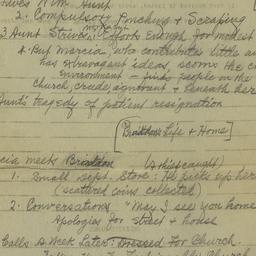 2. Compulsory Pinching & Scraping
3 Aunt Strives, Effort Enough for modest
4. But Marcia, who contributes little as
has extravagant ideas, scorns the
Environment - finds people on the
Church, crude, ignorant & beneath her
Aunt's tragedy of patient resignation
[Brandon's Life + Home]
meets Brandon
1. Small dept. Store: He picks up her
(scattered coins collected)
2. Conversations "May I see you home"
Apologies for street & house
Calls a Week Later: Dressed For Church.